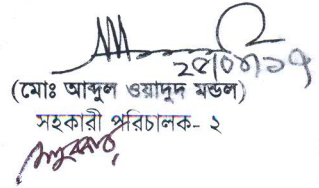 ২৫/০৩/১৭
(মোঃ আব্দুল ওয়াদুদ মন্ডল)
সহকারী পরিচালক- ২